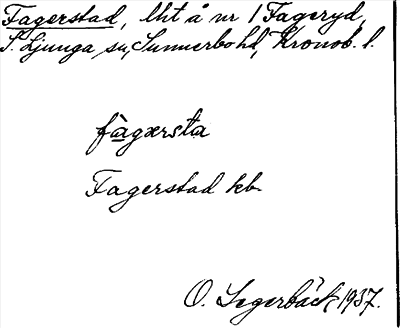 Fagerstad, lht å nr 1 Fageryd,
S. Ljunga sn, Sunnerbo hd, Kronob. l.
fàgærsta
Fagerstad kb.
O. Segerbäck, 1937.